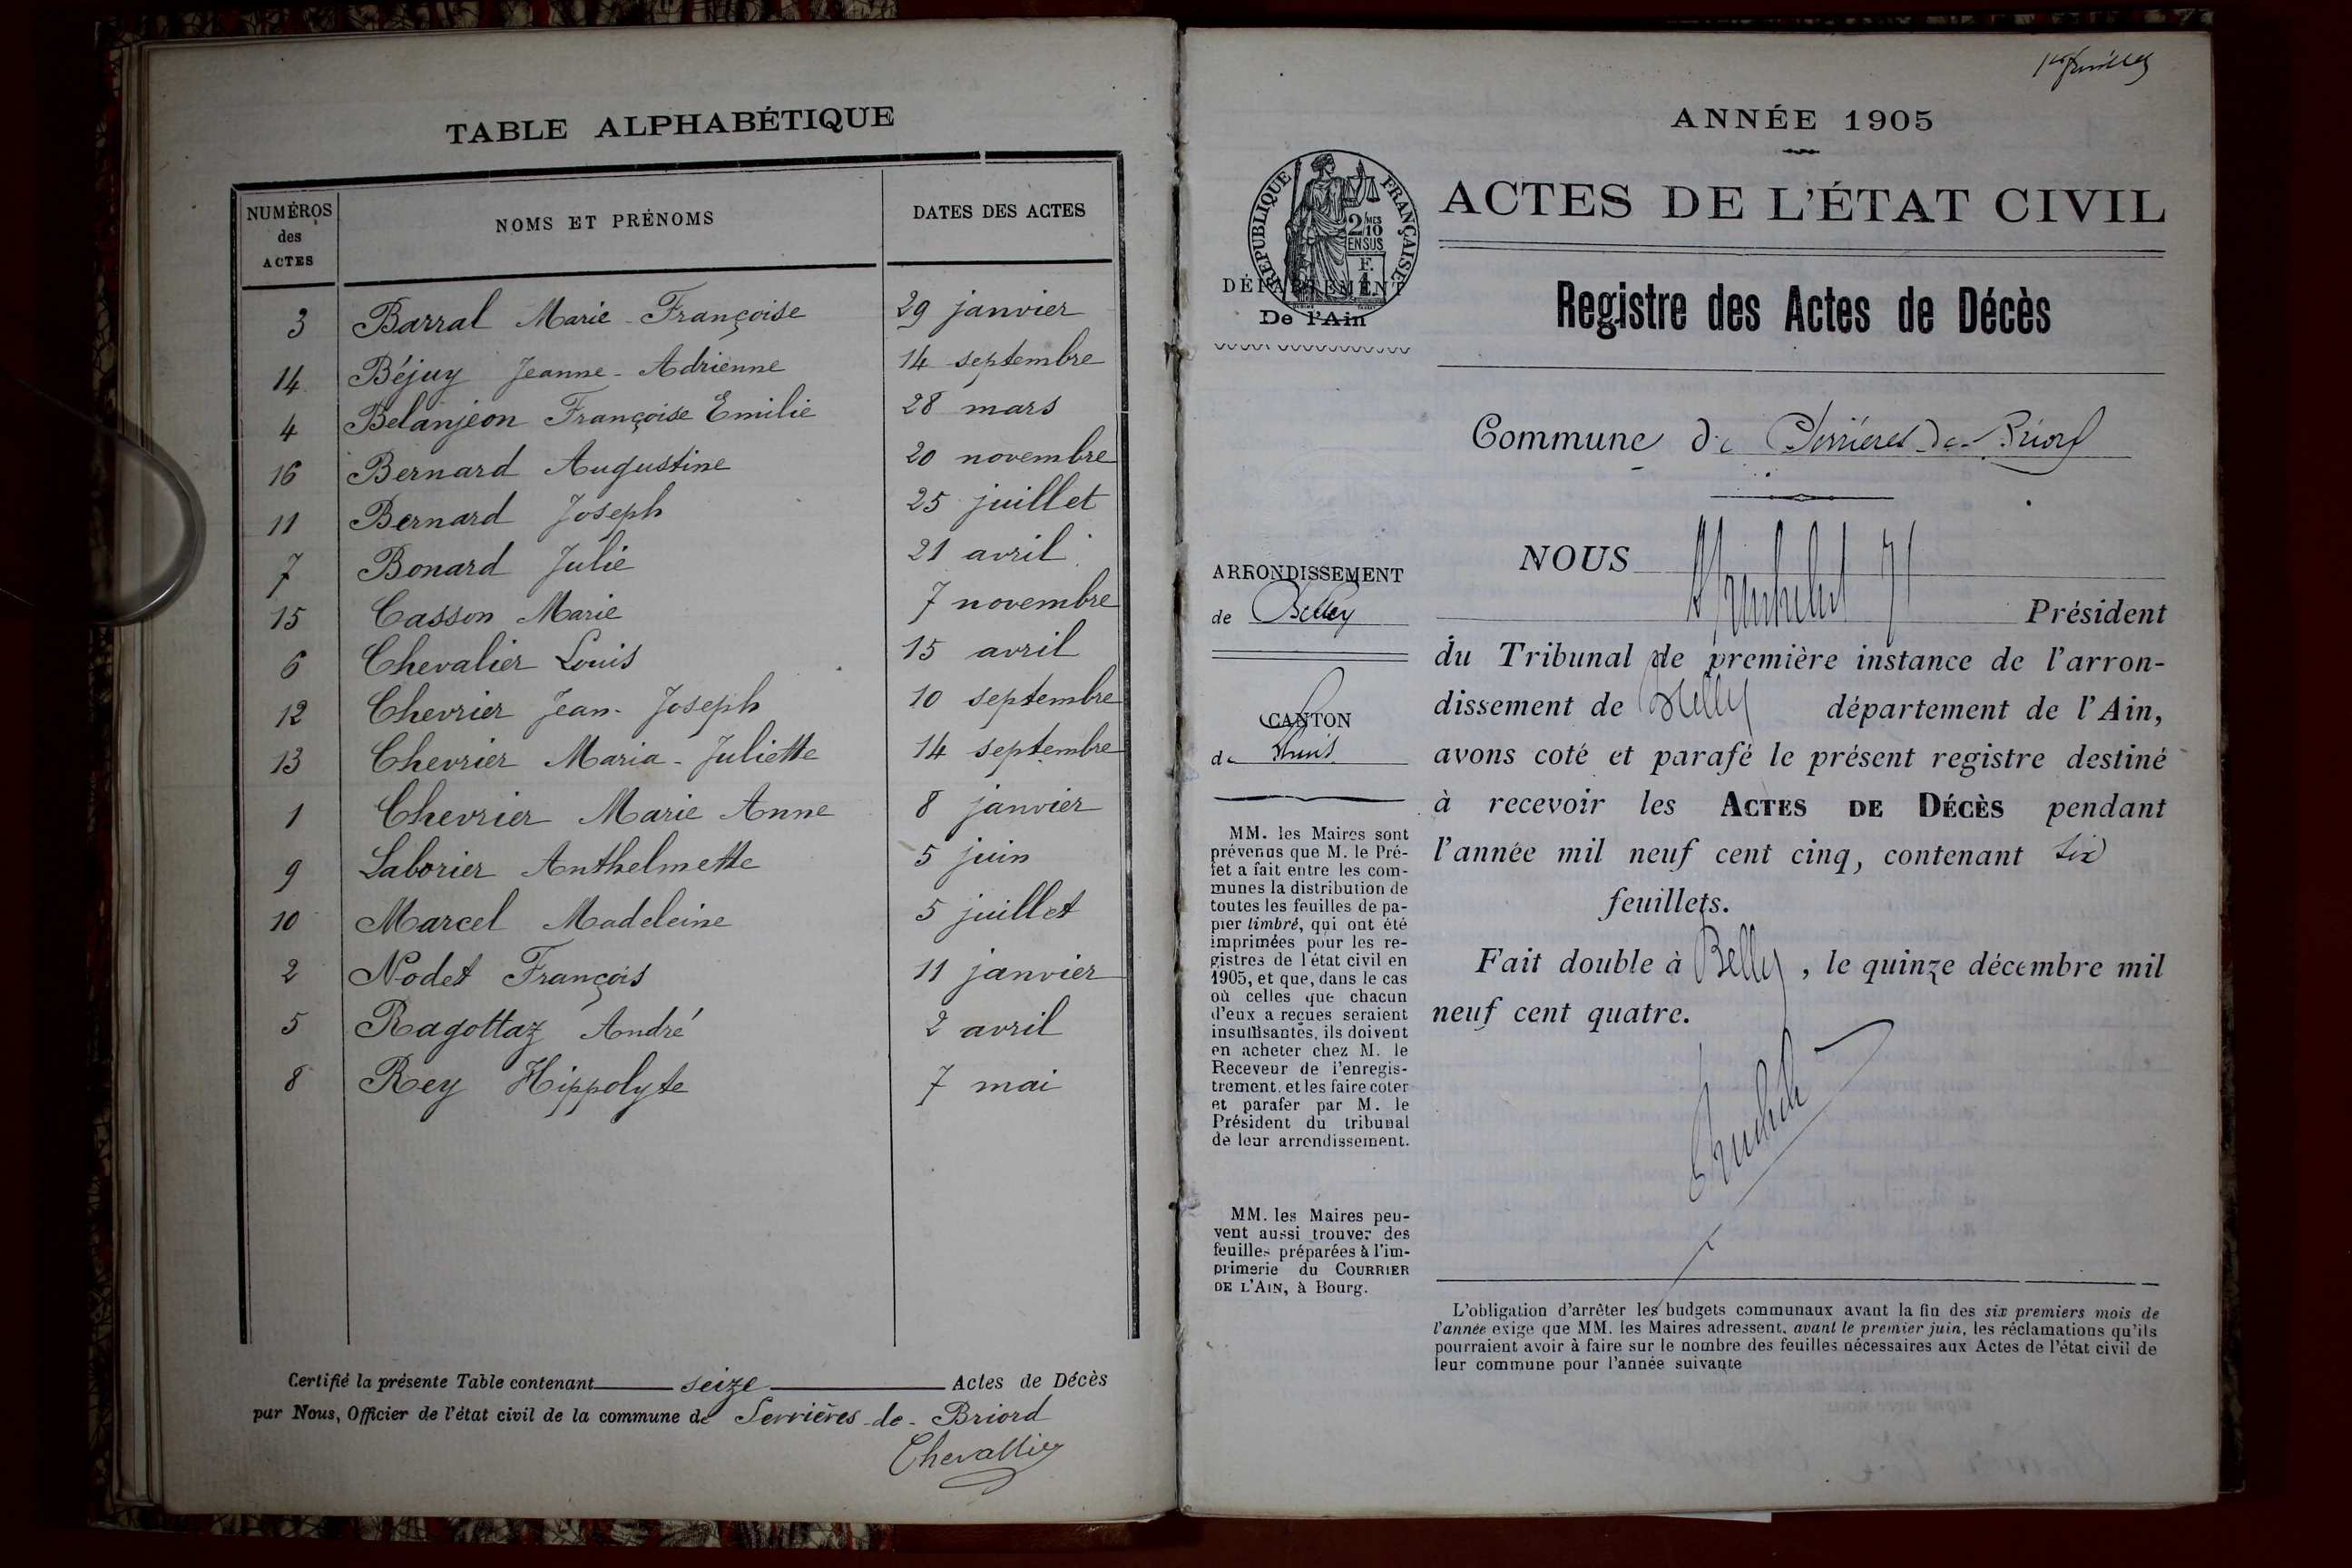 TABLE ALPHABÉTIQUE
NUMÉROS des ACTES NOMS ET PRÉNOMS DATES DES ACTES
3 Barral Marie-Françoise 29 janvier
14 Béjuy Jeanne-Adrienne 14 septembre
4 Belanjeon Françoise Emilie 28 mars
16 Bernard Augustine 20 novembre
11 Bernard Joseph 25 juillet
7 Bonard Julie 21 avril
15 Casson Marie 7 novembre
6 Chevalier Louis 15 avril
12 Chevrier Jean-Joseph 10 septembre
13 Chevrier Maria-Juliette 14 septembre
1 Chevrier Marie Anne 8 janvier
9 Laborier Anthelmette 5 juin
10 Marcel Madeleine 5 juillet
2 Nodet François 11 janvier
5 Ragottaz André 2 avril
8 Rey Hippolyte 7 mai
Certifié la présente Table contenant seize Actes de Décès
par Nous, Officier de l'état civil de la commune de Serrières-de-Briord
Chevallier
ANNÉE 1905
RÉPUBLIQUE FRANÇAISE
2/10 MES
EN SUS
DÉPARTEMENT
De l'Ain
ARRONDISSEMENT
de Belley
CANTON
de Lhuis
MM. les Maires sont
prévenus que M. le Pré-
fet a fait entre les com-
munes la distribution de
toutes les feuilles de pa-
pier timbré, qui ont été
imprimées pour les re-
gistres de l'état civil en
1905, et que, dans le cas
où celles que chacun
d'eux a reçues seraient
insuffisantes, ils doivent
en acheter chez M. le
Receveur de l'enregis-
trement, et les faire coter
et parafer par M. le
Président du tribunal
de leur arrondissement.
MM. les Maires peu-
vent aussi trouver des
feuilles préparées à l'im-
primerie du COURRIER
DE L'AIN, à Bourg.
ACTES DE L'ÉTAT CIVIL
Registre des Actes de Décès
Commune de Serrières-de-Briord
NOUS
Président
du Tribunal de première instance de l'arron-
dissement de Belley département de l'Ain,
avons coté et parafé le présent registre destiné
à recevoir les ACTES DE DÉCÈS pendant
l'année mil neuf cent cinq, contenant six
feuillets.
Fait double à Belley, le quinze décembre mil
neuf cent quatre.
L'obligation d'arrêter les budgets communaux avant la fin des six premiers mois de
l'année exige que MM. les Maires adressent, avant le premier juin, les réclamations qu'ils
pourraient avoir à faire sur le nombre des feuilles nécessaires aux Actes de l'état civil de
leur commune pour l'année suivante